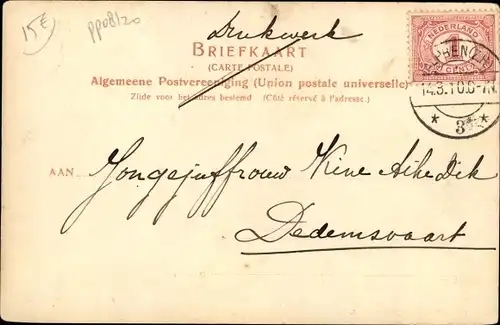 15€
PP08120
Drukwerk
BRIEFKAART
(CARTE POSTALE)
Algemeene Postvereeniging (Union postale universelle)
Zijde voor het adres bestemd (Côté réservé à l'adresse.)
NEDERLAND
1
14.3.10.6-7N.
* 3 *
AAN Jongejuffrouw Kine Dik
Dedemsvaart